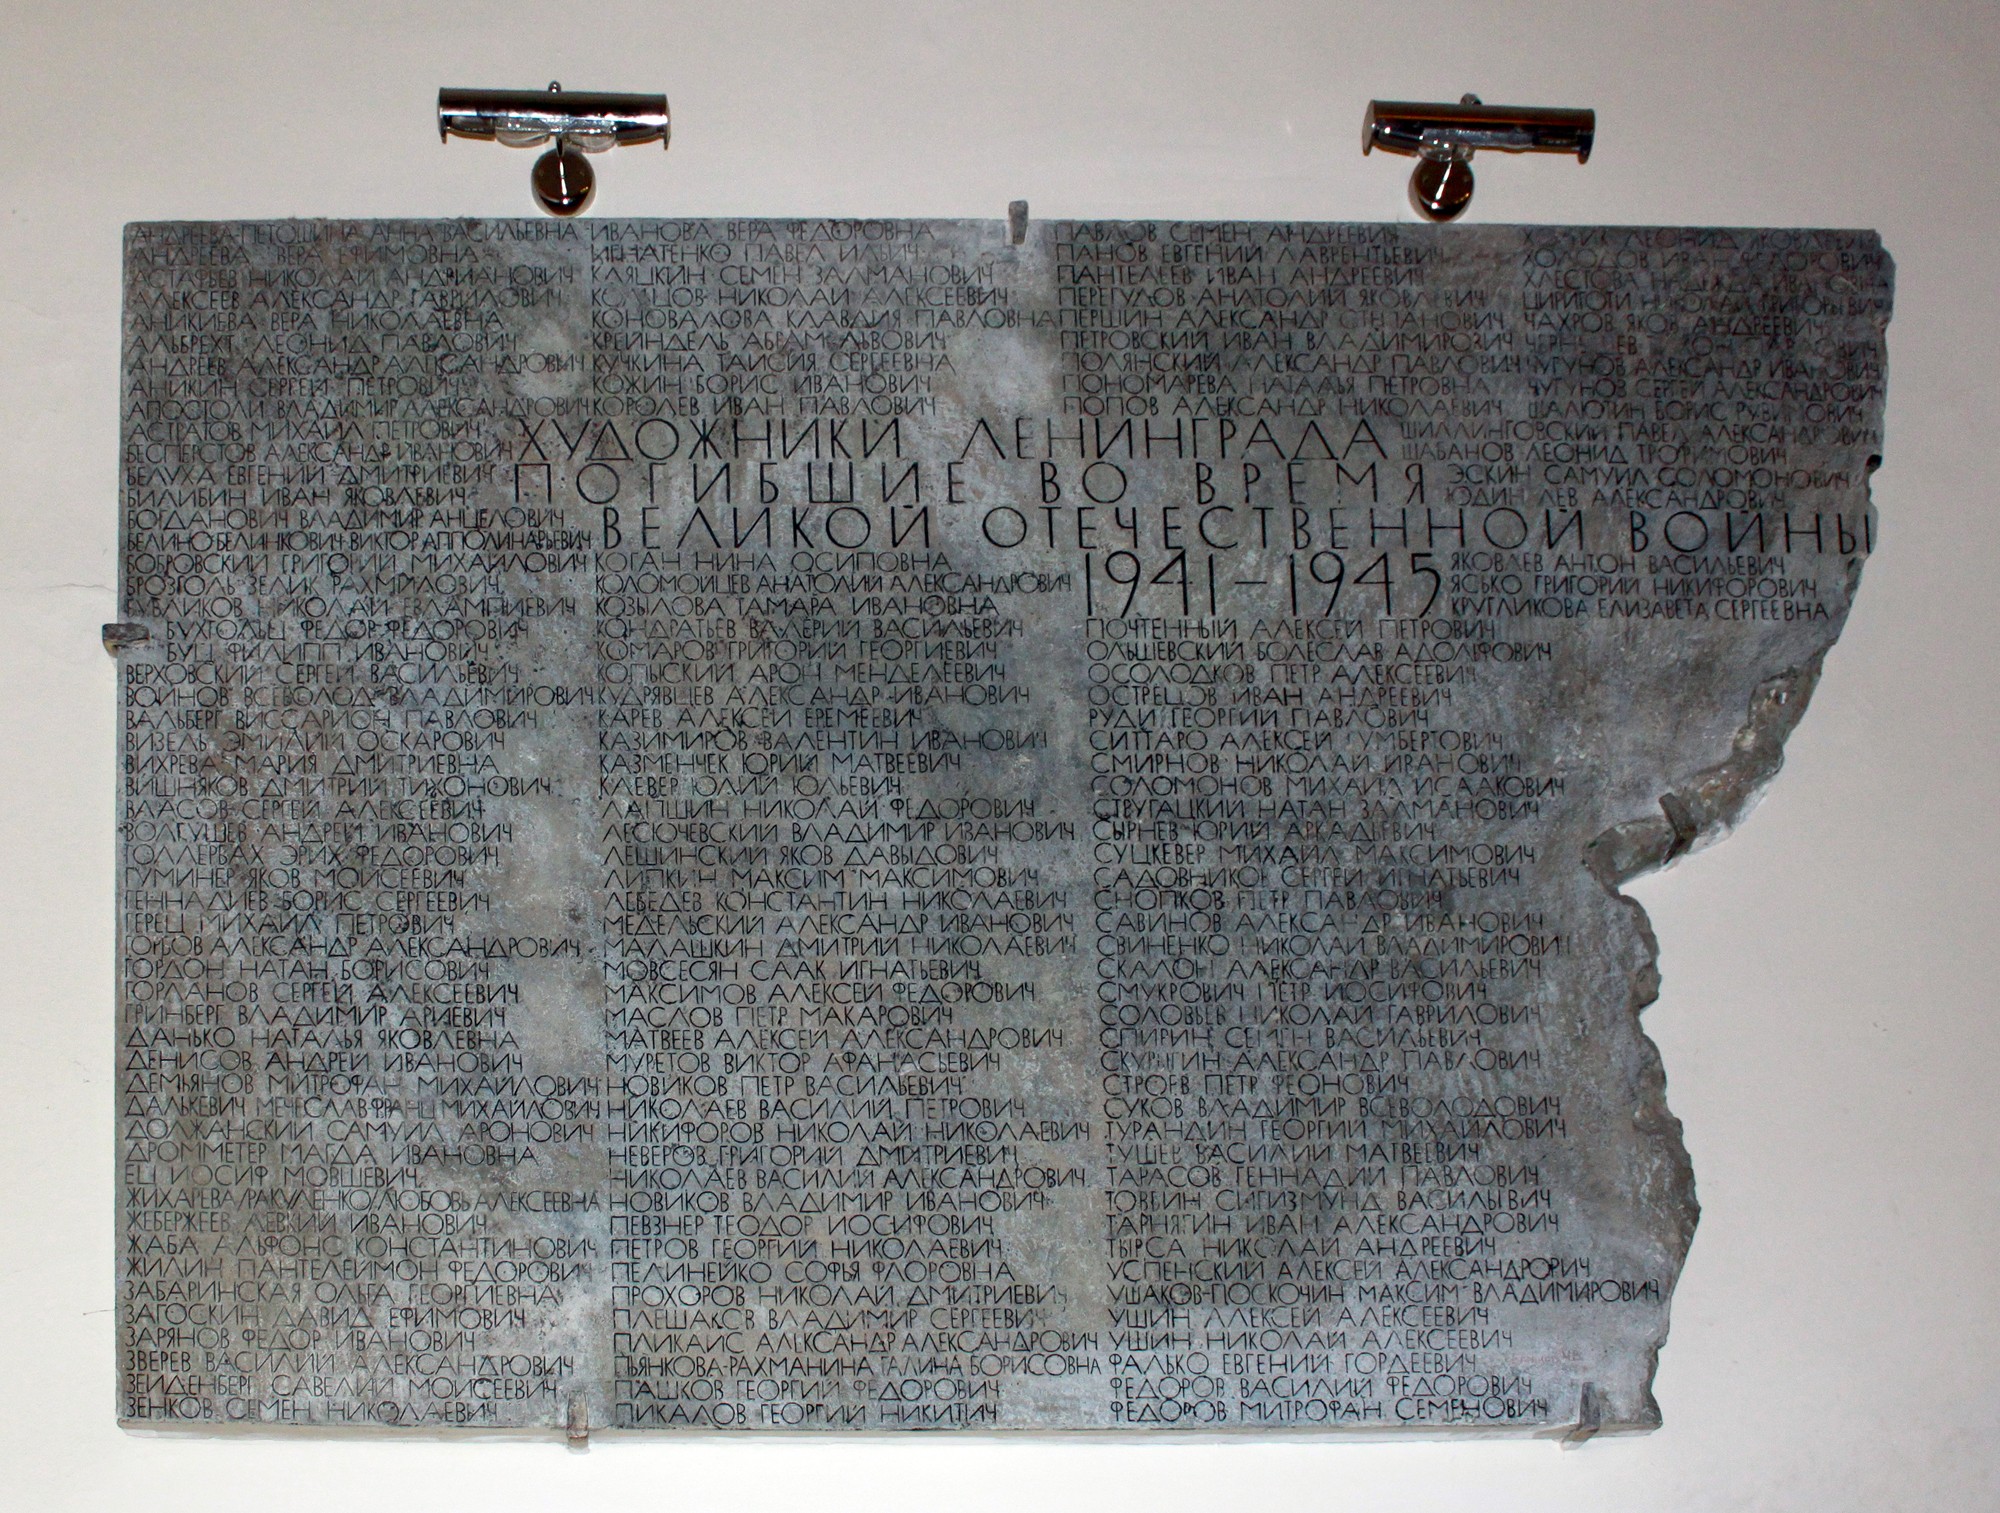 АНДРЕЕВА-ПЕТОШИНА АННА ВАСИЛЬЕВНА
АНДРЕЕВА ВЕРА ЕФИМОВНА
АСТАФЬЕВ НИКОЛАЙ АНДРИАНОВИЧ
АЛЕКСЕЕВ АЛЕКСАНДР ГАВРИЛОВИЧ
АНИКИЕВА ВЕРА НИКОЛАЕВНА
АЛЬБРЕХТ ЛЕОНИД ПАВЛОВИЧ
АНДРЕЕВ АЛЕКСАНДР АЛЕКСАНДРОВИЧ
АНИКИН СЕРГЕЙ ПЕТРОВИЧ
АПОСТОЛИ ВЛАДИМИР АЛЕКСАНДРОВИЧ
АСТРАТОВ МИХАИЛ ПЕТРОВИЧ
БЕСПЕРСТОВ АЛЕКСАНДР ИВАНОВИЧ
БЕЛУХА ЕВГЕНИЙ ДМИТРИЕВИЧ
БИЛИБИН ИВАН ЯКОВЛЕВИЧ
БОГДАНОВИЧ ВЛАДИМИР АНЦЕЛОВИЧ
БЕЛИНО-БЕЛИНКОВИЧ ВИКТОР АППОЛИНАРЬЕВИЧ
БОБРОВСКИЙ ГРИГОРИЙ МИХАЙЛОВИЧ
БРОЗГОЛЬ ЗЕЛИК РАХМИЛОВИЧ
БУБЛИКОВ НИКОЛАЙ ЕВЛАМПИЕВИЧ
БУХГОЛЬЦ ФЕДОР ФЕДОРОВИЧ
БУЦ ФИЛИПП ИВАНОВИЧ
ВЕРХОВСКИЙ СЕРГЕЙ ВАСИЛЬЕВИЧ
ВОИНОВ ВСЕВОЛОД ВЛАДИМИРОВИЧ
ВАЛЬБЕРГ ВИССАРИОН ПАВЛОВИЧ
ВИЗЕЛЬ ЭМИЛИЙ ОСКАРОВИЧ
ВИХРЕВА МАРИЯ ДМИТРИЕВНА
ВИШНЯКОВ ДМИТРИЙ ТИХОНОВИЧ
ВЛАСОВ СЕРГЕЙ АЛЕКСЕЕВИЧ
ВОЛГУШЕВ АНДРЕЙ ИВАНОВИЧ
ГОЛЛЕРБАХ ЭРИХ ФЕДОРОВИЧ
ГУМИНЕР ЯКОВ МОИСЕЕВИЧ
ГЕННАДИЕВ БОРИС СЕРГЕЕВИЧ
ГЕРЕЦ МИХАИЛ ПЕТРОВИЧ
ГОРБОВ АЛЕКСАНДР АЛЕКСАНДРОВИЧ
ГОРДОН НАТАН БОРИСОВИЧ
ГОРЛАНОВ СЕРГЕЙ АЛЕКСЕЕВИЧ
ГРИНБЕРГ ВЛАДИМИР АРИЕВИЧ
ДАНЬКО НАТАЛЬЯ ЯКОВЛЕВНА
ДЕНИСОВ АНДРЕЙ ИВАНОВИЧ
ДЕМЬЯНОВ МИТРОФАН МИХАЙЛОВИЧ
ДАЛЬКЕВИЧ МЕЧЕСЛАВ-ФРАНЦ МИХАЙЛОВИЧ
ДОЛЖАНСКИЙ САМУИЛ АРОНОВИЧ
ДРОММЕТЕР МАГДА ИВАНОВНА
ЕЦ ИОСИФ МОВШЕВИЧ
ЖИХАРЕВА/РАКУЛЕНКО/ЛЮБОВЬ АЛЕКСЕЕВНА
ЖЕБЕРЖЕЕВ ЛЕВКИЙ ИВАНОВИЧ
ЖАБА АЛЬФОНС КОНСТАНТИНОВИЧ
ЖИЛИН ПАНТЕЛЕЙМОН ФЕДОРОВИЧ
ЗАБАРИНСКАЯ ОЛЬГА ГЕОРГИЕВНА
ЗАГОСКИН ДАВИД ЕФИМОВИЧ
ЗАРЯНОВ ФЕДОР ИВАНОВИЧ
ЗВЕРЕВ ВАСИЛИЙ АЛЕКСАНДРОВИЧ
ЗЕЙДЕНБЕРГ САВЕЛИЙ МОИСЕЕВИЧ
ЗЕНКОВ СЕМЕН НИКОЛАЕВИЧ
ИВАНОВА ВЕРА ФЕДОРОВНА
ИГНАТЕНКО ПАВЕЛ ИЛЬИЧ
КЛЯШКИН СЕМЕН ЗАЛМАНОВИЧ
КОЛЬЦОВ НИКОЛАЙ АЛЕКСЕЕВИЧ
КОНОВАЛОВА КЛАВДИЯ ПАВЛОВНА
КРЕЙНДЕЛЬ АБРАМ ЛЬВОВИЧ
КУЧКИНА ТАИСИЯ СЕРГЕЕВНА
КОЖИН БОРИС ИВАНОВИЧ
КОРОЛЕВ ИВАН ПАВЛОВИЧ
ПАВЛОВ СЕМЕН АНДРЕЕВИЧ
ПАНОВ ЕВГЕНИЙ ЛАВРЕНТЬЕВИЧ
ПАНТЕЛЕЕВ ИВАН АНДРЕЕВИЧ
ПЕРЕГУДОВ АНАТОЛИЙ ЯКОВЛЕВИЧ
ПЕРШИН АЛЕКСАНДР СТЕПАНОВИЧ
ПЕТРОВСКИЙ ИВАН ВЛАДИМИРОВИЧ
ПОЛЯНСКИЙ АЛЕКСАНДР ПАВЛОВИЧ
ПОНОМАРЕВА НАТАЛЬЯ ПЕТРОВНА
ПОПОВ АЛЕКСАНДР НИКОЛАЕВИЧ
ЛЕОНИД ЯКОВЛЕВИЧ
ХОЛОДОВ ИВАН ФЕДОРОВИЧ
ХЛЕСТОВА НАДЕЖДА ИВАНОВНА
ЦИРИГОТИ НИКОЛАЙ ГРИГОРЬЕВИЧ
ЧАХРОВ ЯКОВ АНДРЕЕВИЧ
ЧУГУНОВ АЛЕКСАНДР ИВАНОВИЧ
ЧУГУНОВ СЕРГЕЙ АЛЕКСАНДРОВИЧ
ШАЛЮТИН БОРИС РУВИМОВИЧ
ШИЛЛИНГОВСКИЙ ПАВЕЛ АЛЕКСАНДРОВИЧ
ШАБАНОВ ЛЕОНИД ТРОФИМОВИЧ
ЭСКИН САМУИЛ СОЛОМОНОВИЧ
ЮДИН ЛЕВ АЛЕКСАНДРОВИЧ
ХУДОЖНИКИ ЛЕНИНГРАДА
ПОГИБШИЕ ВО ВРЕМЯ
ВЕЛИКОЙ ОТЕЧЕСТВЕННОЙ ВОЙНЫ
1941-1945
ЯКОВЛЕВ АНТОН ВАСИЛЬЕВИЧ
ЯСЬКО ГРИГОРИЙ НИКИФОРОВИЧ
КРУГЛИКОВА ЕЛИЗАВЕТА СЕРГЕЕВНА
КОГАН НИНА ОСИПОВНА
КОЛОМОЙЦЕВ АНАТОЛИЙ АЛЕКСАНДРОВИЧ
КОЗЫЛОВА ТАМАРА ИВАНОВНА
КОНДРАТЬЕВ ВАЛЕРИЙ ВАСИЛЬЕВИЧ
КОМАРОВ ГРИГОРИЙ ГЕОРГИЕВИЧ
КОПЫСКИЙ АРОН МЕНДЕЛЕЕВИЧ
КУДРЯВЦЕВ АЛЕКСАНДР ИВАНОВИЧ
КАРЕВ АЛЕКСЕЙ ЕРЕМЕЕВИЧ
КАЗИМИРОВ ВАЛЕНТИН ИВАНОВИЧ
КАЗМЕНЧЕК ЮРИЙ МАТВЕЕВИЧ
КЛЕВЕР ЮЛИЙ ЮЛЬЕВИЧ
ЛАПШИН НИКОЛАЙ ФЕДОРОВИЧ
ЛЕСЮЧЕВСКИЙ ВЛАДИМИР ИВАНОВИЧ
ЛЕШИНСКИЙ ЯКОВ ДАВЫДОВИЧ
ЛИПКИН МАКСИМ МАКСИМОВИЧ
ЛЕБЕДЕВ КОНСТАНТИН НИКОЛАЕВИЧ
МЕДЕЛЬСКИЙ АЛЕКСАНДР ИВАНОВИЧ
МАЛАШКИН ДМИТРИЙ НИКОЛАЕВИЧ
МОВСЕСЯН СААК ИГНАТЬЕВИЧ
МАКСИМОВ АЛЕКСЕЙ ФЕДОРОВИЧ
МАСЛОВ ПЕТР МАКАРОВИЧ
МАТВЕЕВ АЛЕКСЕЙ АЛЕКСАНДРОВИЧ
МУРЕТОВ ВИКТОР АФАНАСЬЕВИЧ
НОВИКОВ ПЕТР ВАСИЛЬЕВИЧ
НИКОЛАЕВ ВАСИЛИЙ ПЕТРОВИЧ
НИКИФОРОВ НИКОЛАЙ НИКОЛАЕВИЧ
НЕВЕРОВ ГРИГОРИЙ ДМИТРИЕВИЧ
НИКОЛАЕВ ВАСИЛИЙ АЛЕКСАНДРОВИЧ
НОВИКОВ ВЛАДИМИР ИВАНОВИЧ
ПЕВЗНЕР ТЕОДОР ИОСИФОВИЧ
ПЕТРОВ ГЕОРГИЙ НИКОЛАЕВИЧ
ПЕЛИНЕЙКО СОФЬЯ ФЛОРОВНА
ПРОХОРОВ НИКОЛАЙ ДМИТРИЕВИЧ
ПЛЕШАКОВ ВЛАДИМИР СЕРГЕЕВИЧ
ПЛИКАИС АЛЕКСАНДР АЛЕКСАНДРОВИЧ
ПЬЯНКОВА-РАХМАНИНА ГАЛИНА БОРИСОВНА
ПАШКОВ ГЕОРГИЙ ФЕДОРОВИЧ
ПИКАЛОВ ГЕОРГИЙ НИКИТИЧ
ПОЧТЕННЫЙ АЛЕКСЕЙ ПЕТРОВИЧ
ОЛЬШЕВСКИЙ БОЛЕСЛАВ АДОЛЬФОВИЧ
ОСОЛОДКОВ ПЕТР АЛЕКСЕЕВИЧ
ОСТРЕЦОВ ИВАН АНДРЕЕВИЧ
РУДИ ГЕОРГИЙ ПАВЛОВИЧ
СИТТАРО АЛЕКСЕЙ ГУМБЕРТОВИЧ
СМИРНОВ НИКОЛАЙ ИВАНОВИЧ
СОЛОМОНОВ МИХАИЛ ИСААКОВИЧ
СТРУГАЦКИЙ НАТАН ЗАЛМАНОВИЧ
СЫРНЕВ ЮРИЙ АРКАДЬЕВИЧ
СУЦКЕВЕР МИХАИЛ МАКСИМОВИЧ
САДОВНИКОВ СЕРГЕЙ ИГНАТЬЕВИЧ
СНОПКОВ ПЕТР ПАВЛОВИЧ
САВИНОВ АЛЕКСАНДР ИВАНОВИЧ
СВИНЕНКО НИКОЛАЙ ВЛАДИМИРОВИЧ
СКАЛОН АЛЕКСАНДР ВАСИЛЬЕВИЧ
СМУКРОВИЧ ПЕТР ИОСИФОВИЧ
СОЛОВЬЕВ НИКОЛАЙ ГАВРИЛОВИЧ
СПИРИН СЕМЕН ВАСИЛЬЕВИЧ
АЛЕКСАНДР ПАВЛОВИЧ
СТРОЕВ ПЕТР ФЕОНОВИЧ
СУКОВ ВЛАДИМИР ВСЕВОЛОДОВИЧ
ТУРАНДИН ГЕОРГИЙ МИХАЙЛОВИЧ
ТУШЕВ ВАСИЛИЙ МАТВЕЕВИЧ
ТАРАСОВ ГЕННАДИЙ ПАВЛОВИЧ
ТОВВИН СИГИЗМУНД ВАСИЛЬЕВИЧ
ТАРНЯГИН ИВАН АЛЕКСАНДРОВИЧ
ТЫРСА НИКОЛАЙ АНДРЕЕВИЧ
УСПЕНСКИЙ АЛЕКСЕЙ АЛЕКСАНДРОВИЧ
УШАКОВ-ПОСКОЧИН МАКСИМ ВЛАДИМИРОВИЧ
УШИН АЛЕКСЕЙ АЛЕКСЕЕВИЧ
УШИН НИКОЛАЙ АЛЕКСЕЕВИЧ
ФАЛЬКО ЕВГЕНИЙ ГОРДЕЕВИЧ
ФЕДОРОВ ВАСИЛИЙ ФЕДОРОВИЧ
ФЕДОРОВ МИТРОФАН СЕМЕНОВИЧ